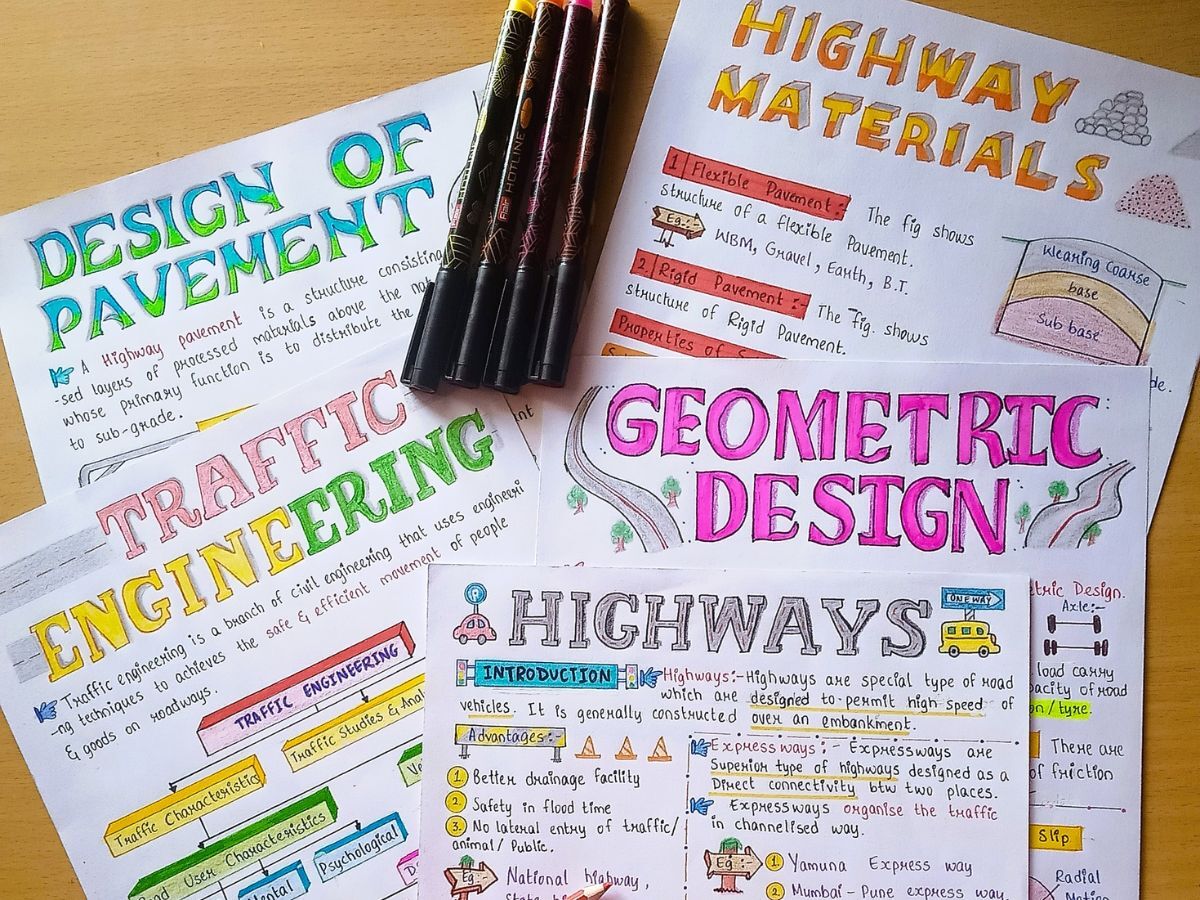 DESIGN OF
PAVEMENT
A Highway pavement is a structure consisting
-sed layers of processed materials above the
whose primary function is to distribute the
to sub-grade.
HOTLINE
HIGHWAY
MATERIALS
1 Flexible Pavement:- The fig shows
structure of a flexible Pavement.
Eg:- WBM, Gravel, Earth, B.T.
2. Rigid Pavement:- The fig. shows
structure of Rigid Pavement.
Properties of
Wearing Coarse
base
Sub base
TRAFFIC
ENGINEERING
Traffic engineering is a branch of civil engineering that uses engineeri
-ng techniques to achieves the safe & efficient movement of people
& goods on roadways.
TRAFFIC ENGINEERING
Traffic Studies &
Traffic Characteristics
User Characteristics
Psychological
GEOMETRIC
DESIGN
Design.
Axle:-
load carry
of road
/tyre.
There are
of friction
Slip
Radial
HIGHWAYS
ONE WAY
INTRODUCTION
Highways:- Highways are special type of road
which are designed to permit high speed of
vehicles. It is generally constructed over an embankment.
Advantages:-
1. Better drainage facility
2. Safety in flood time
3. No lateral entry of traffic/
animal/ Public.
Eg National highway,
Expressways:- Expressways are
Superior type of highways designed as a
Direct connectivity btw two places.
Expressways organise the traffic
in channelised way.
Eg:- 1 Yamuna Express way
2. Mumbai - Pune express way.